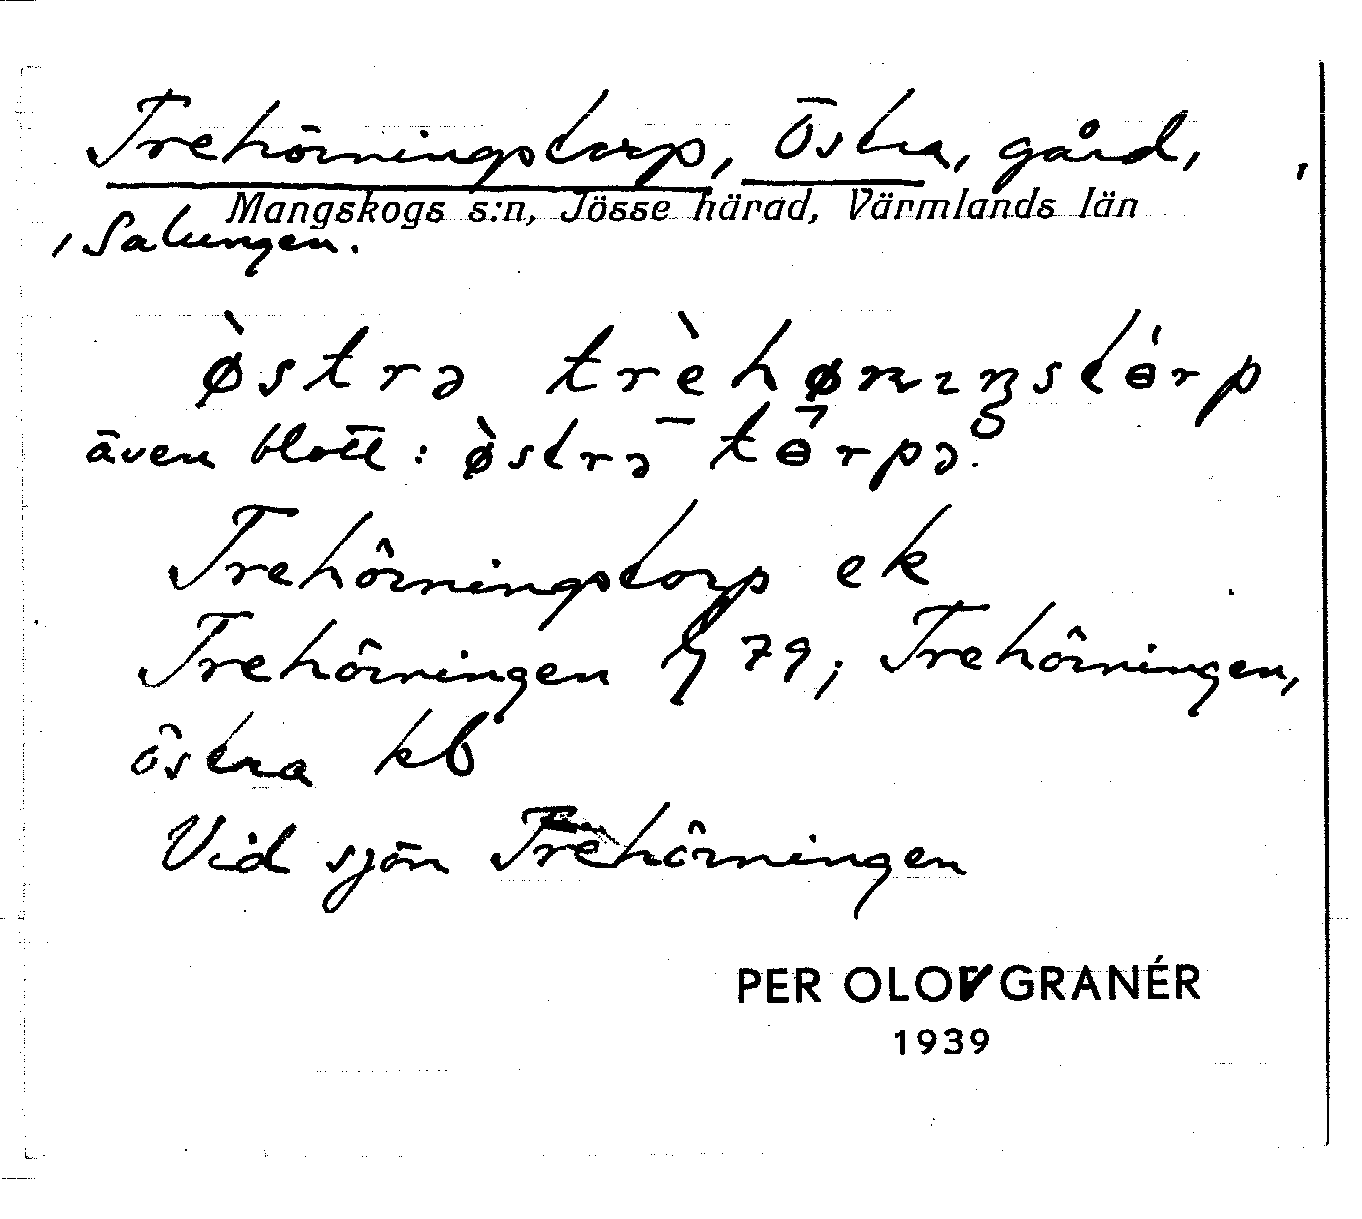 Trehörningstorp, Östra, gård,
Mangskogs s:n, Jösse härad, Värmlands län
i Salungen.
ø̀strə trèhøɳɪŋstɵ́rp
även blott: ø̀strə tɵ́rpə.
Trehörningstorp ek
Trehörningen 79; Trehörningen,
östra kb
Vid sjön Trehörningen
PER OLOV GRANÉR
1939